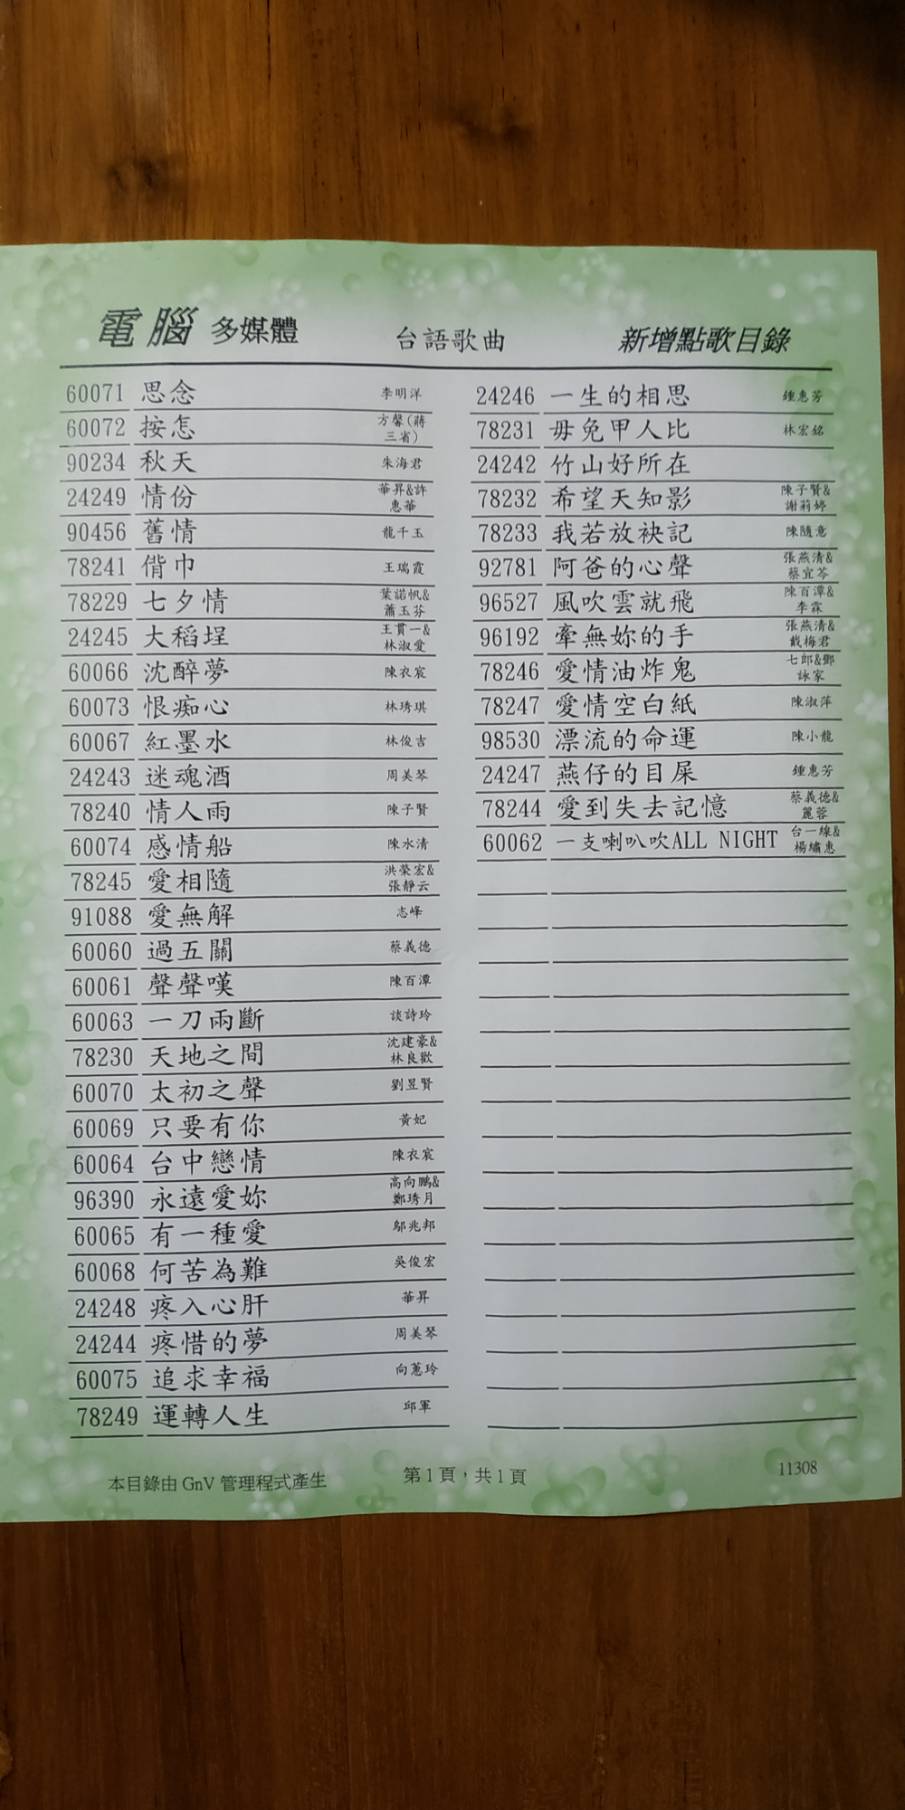 電腦 多媒體 台語歌曲 新增點歌目錄
60071 思念 李明洋
60072 按怎 方馨(蔣三省)
90234 秋天 朱海君
24249 情份 華昇&許惠華
90456 舊情 龍千玉
78241 偝巾 王瑞霞
78229 七夕情 葉諾帆&蕭玉芬
24245 大稻埕 王貫一&林淑愛
60066 沈醉夢 陳衣宸
60073 恨痴心 林琇琪
60067 紅墨水 林俊吉
24243 迷魂酒 周美琴
78240 情人雨 陳子賢
60074 感情船 陳水清
78245 愛相隨 洪榮宏&張靜云
91088 愛無解 志峰
60060 過五關 蔡義德
60061 聲聲嘆 陳百潭
60063 一刀兩斷 談詩玲
78230 天地之間 沈建豪&林良歡
60070 太初之聲 劉昱賢
60069 只要有你 黃妃
60064 台中戀情 陳衣宸
96390 永遠愛妳 高向鵬&鄭琇月
60065 有一種愛 鄔兆邦
60068 何苦為難 吳俊宏
24248 疼入心肝 華昇
24244 疼惜的夢 周美琴
60075 追求幸福 向蕙玲
78249 運轉人生 邱軍
24246 一生的相思 鍾惠芳
78231 毋免甲人比 林宏銘
24242 竹山好所在
78232 希望天知影 陳子賢&謝莉婷
78233 我若放袂記 陳隨意
92781 阿爸的心聲 張燕清&蔡宜芩
96527 風吹雲就飛 陳百潭&李霖
96192 牽無妳的手 張燕清&戴梅君
78246 愛情油炸鬼 七郎&鄧詠家
78247 愛情空白紙 陳淑萍
98530 漂流的命運 陳小龍
24247 燕仔的目屎 鍾惠芳
78244 愛到失去記憶 蔡義德&麗蓉
60062 一支喇叭吹ALL NIGHT 台一線&楊繡惠
本目錄由 GnV 管理程式產生 第1頁，共1頁 11308